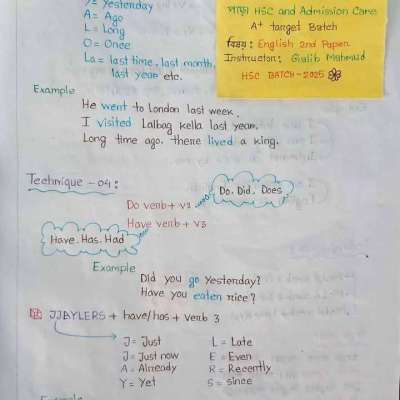 Y= Yesterday
A= Ago
L= Long
O= Once
La= last time, last month,
last year etc.
HSC and Admission Care
A+ target Batch
বিষয়: English 2nd Paper
Instructor: Galib Mahmud
HSC BATCH-2025
Example
He went to London last week.
I visited Lalbag kella last year.
Long time ago. there lived a king.
Technique -04:
Do. Did. Does
Do verb + V1
Have verb + V3
Have. Has. Had
Example
Did you go yesterday?
Have you eaten rice?
JJAYLERS + have/has + verb 3
J= Just
J= Just now
A= Already
Y= Yet
L= Late
E= Even
R= Recently
S= since
Example